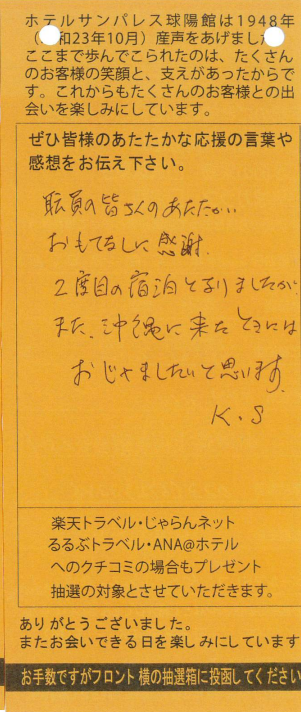 ホテルサンパレス球陽館は1948年
（ 和23年10月）産声をあげまし
ここまで歩んでこられたのは、たくさん
のお客様の笑顔と、支えがあったからで
す。これからもたくさんのお客様との出
会いを楽しみにしています。
ぜひ皆様のあたたかな応援の言葉や
感想をお伝え下さい。
職員の皆さんのあたたかい
おもてなしに感謝.
2度目の宿泊となりましたが、
また、沖縄に来たときには
おじゃましたいと思います。
K.S
楽天トラベル・じゃらんネット
るるぶトラベル・ANA@ホテル
へのクチコミの場合もプレゼント
抽選の対象とさせていただきます。
ありがとうございました。
またお会いできる日を楽しみにしています
お手数ですがフロント横の抽選箱に投函してください